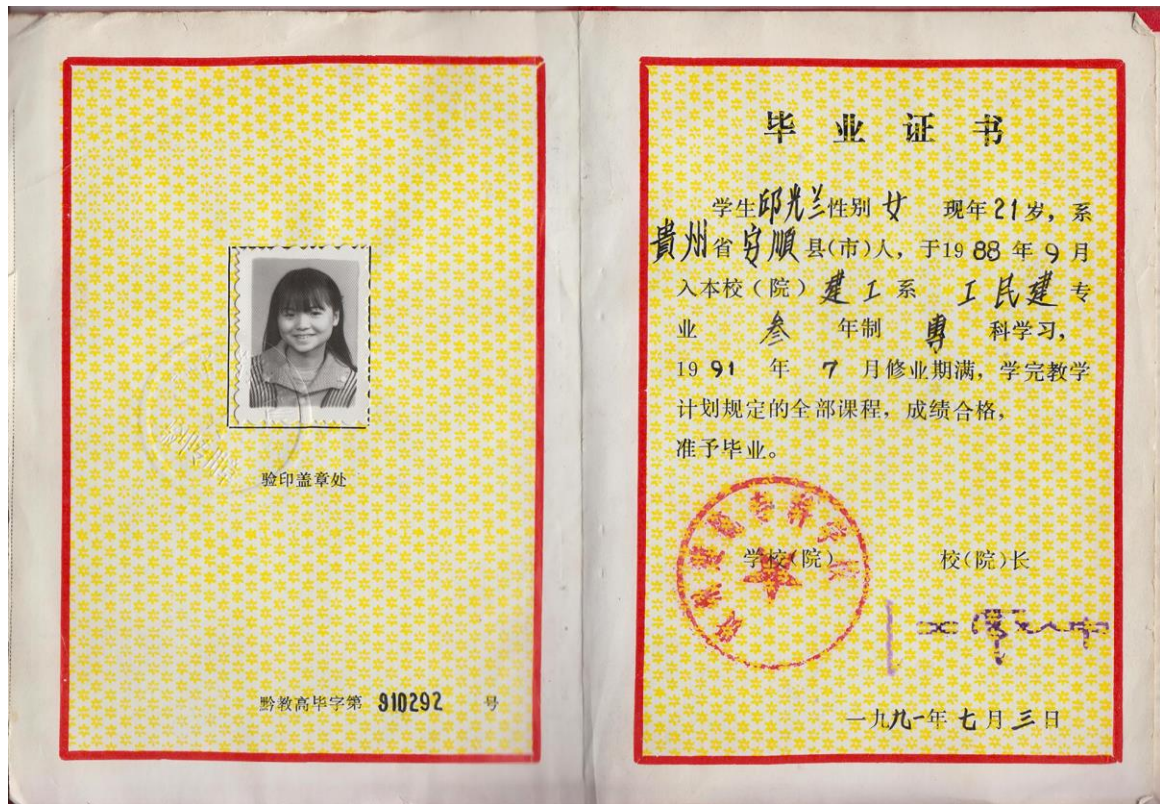 验印盖章处
黔教高毕字第 910292 号
毕业证书
学生邱光兰性别 女 现年21岁，系
貴州省安順县(市)人，于1988年9月
入本校(院) 建工系 工民建专
业 叁 年制 專 科学习，
1991 年 7 月修业期满，学完教学
计划规定的全部课程，成绩合格，
准予毕业。
学校(院) 校(院)长
一九九一年七月三日